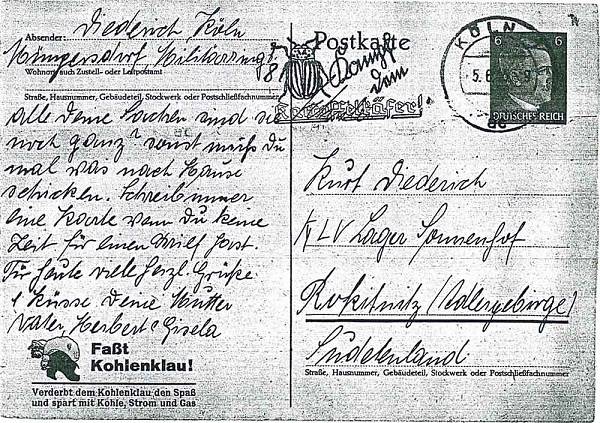 Absender: Diederich Köln
Müngersdorf, Militärringstr
8
Wohnort, auch Zustell- oder Leitpostamt
Straße, Hausnummer, Gebäudeteil, Stockwerk oder Postschließfachnummer
alle Deine Sachen sind sie
noch ganz? sonst mußt Du
mal was nach Hause
schicken. Schreib immer
eine Karte wenn Du keine
Zeit für einen Brief hast.
Für heute viele herzl. Grüße
& Küsse Deine Mutter
Vater, Herbert & Gisela
Faßt
Kohlenklau!
Verderbt dem Kohlenklau den Spaß
und spart mit Kohle, Strom und Gas
Postkarte
Kampf
dem
Kartoffelkäfer!
KÖLN
5.6
6 6
DEUTSCHES REICH
Kurt Diederich
KLV Lager Sonnenhof
Rokitnitz (Adlergebirge)
Sudetenland
Straße, Hausnummer, Gebäudeteil, Stockwerk oder Postschließfachnummer